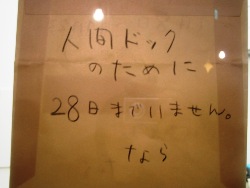 人間ドック
のために
28日までいません。
なら